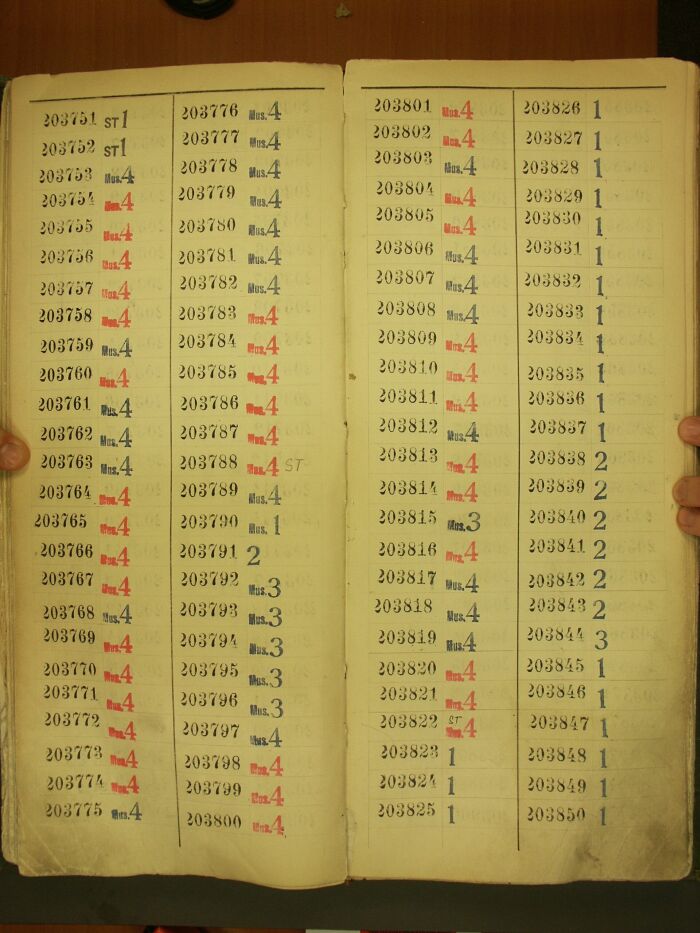 203751 ST 1
203752 ST 1
203753 Mus. 4
203754 Mus. 4
203755 Mus. 4
203756 Mus. 4
203757 Mus. 4
203758 Mus. 4
203759 Mus. 4
203760 Mus. 4
203761 Mus. 4
203762 Mus. 4
203763 Mus. 4
203764 Mus. 4
203765 Mus. 4
203766 Mus. 4
203767 Mus. 4
203768 Mus. 4
203769 Mus. 4
203770 Mus. 4
203771 Mus. 4
203772 Mus. 4
203773 Mus. 4
203774 Mus. 4
203775 Mus. 4
203776 Mus. 4
203777 Mus. 4
203778 Mus. 4
203779 Mus. 4
203780 Mus. 4
203781 Mus. 4
203782 Mus. 4
203783 Mus. 4
203784 Mus. 4
203785 Mus. 4
203786 Mus. 4
203787 Mus. 4
203788 Mus. 4 ST
203789 Mus. 4
203790 Mus. 1
203791 2
203792 Mus. 3
203793 Mus. 3
203794 Mus. 3
203795 Mus. 3
203796 Mus. 3
203797 Mus. 4
203798 Mus. 4
203799 Mus. 4
203800 Mus. 4
203801 Mus. 4
203802 Mus. 4
203803 Mus. 4
203804 Mus. 4
203805 Mus. 4
203806 Mus. 4
203807 Mus. 4
203808 Mus. 4
203809 Mus. 4
203810 Mus. 4
203811 Mus. 4
203812 Mus. 4
203813 Mus. 4
203814 Mus. 4
203815 Mus. 3
203816 Mus. 4
203817 Mus. 4
203818 Mus. 4
203819 Mus. 4
203820 Mus. 4
203821 Mus. 4
203822 ST Mus. 4
203823 1
203824 1
203825 1
203826 1
203827 1
203828 1
203829 1
203830 1
203831 1
203832 1
203833 1
203834 1
203835 1
203836 1
203837 1
203838 2
203839 2
203840 2
203841 2
203842 2
203843 2
203844 3
203845 1
203846 1
203847 1
203848 1
203849 1
203850 1